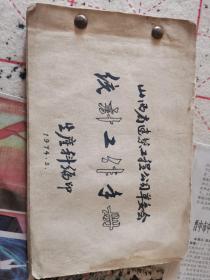 山西省建筑工程公司革委会
统计工作手册
生产科编印
1974.2.